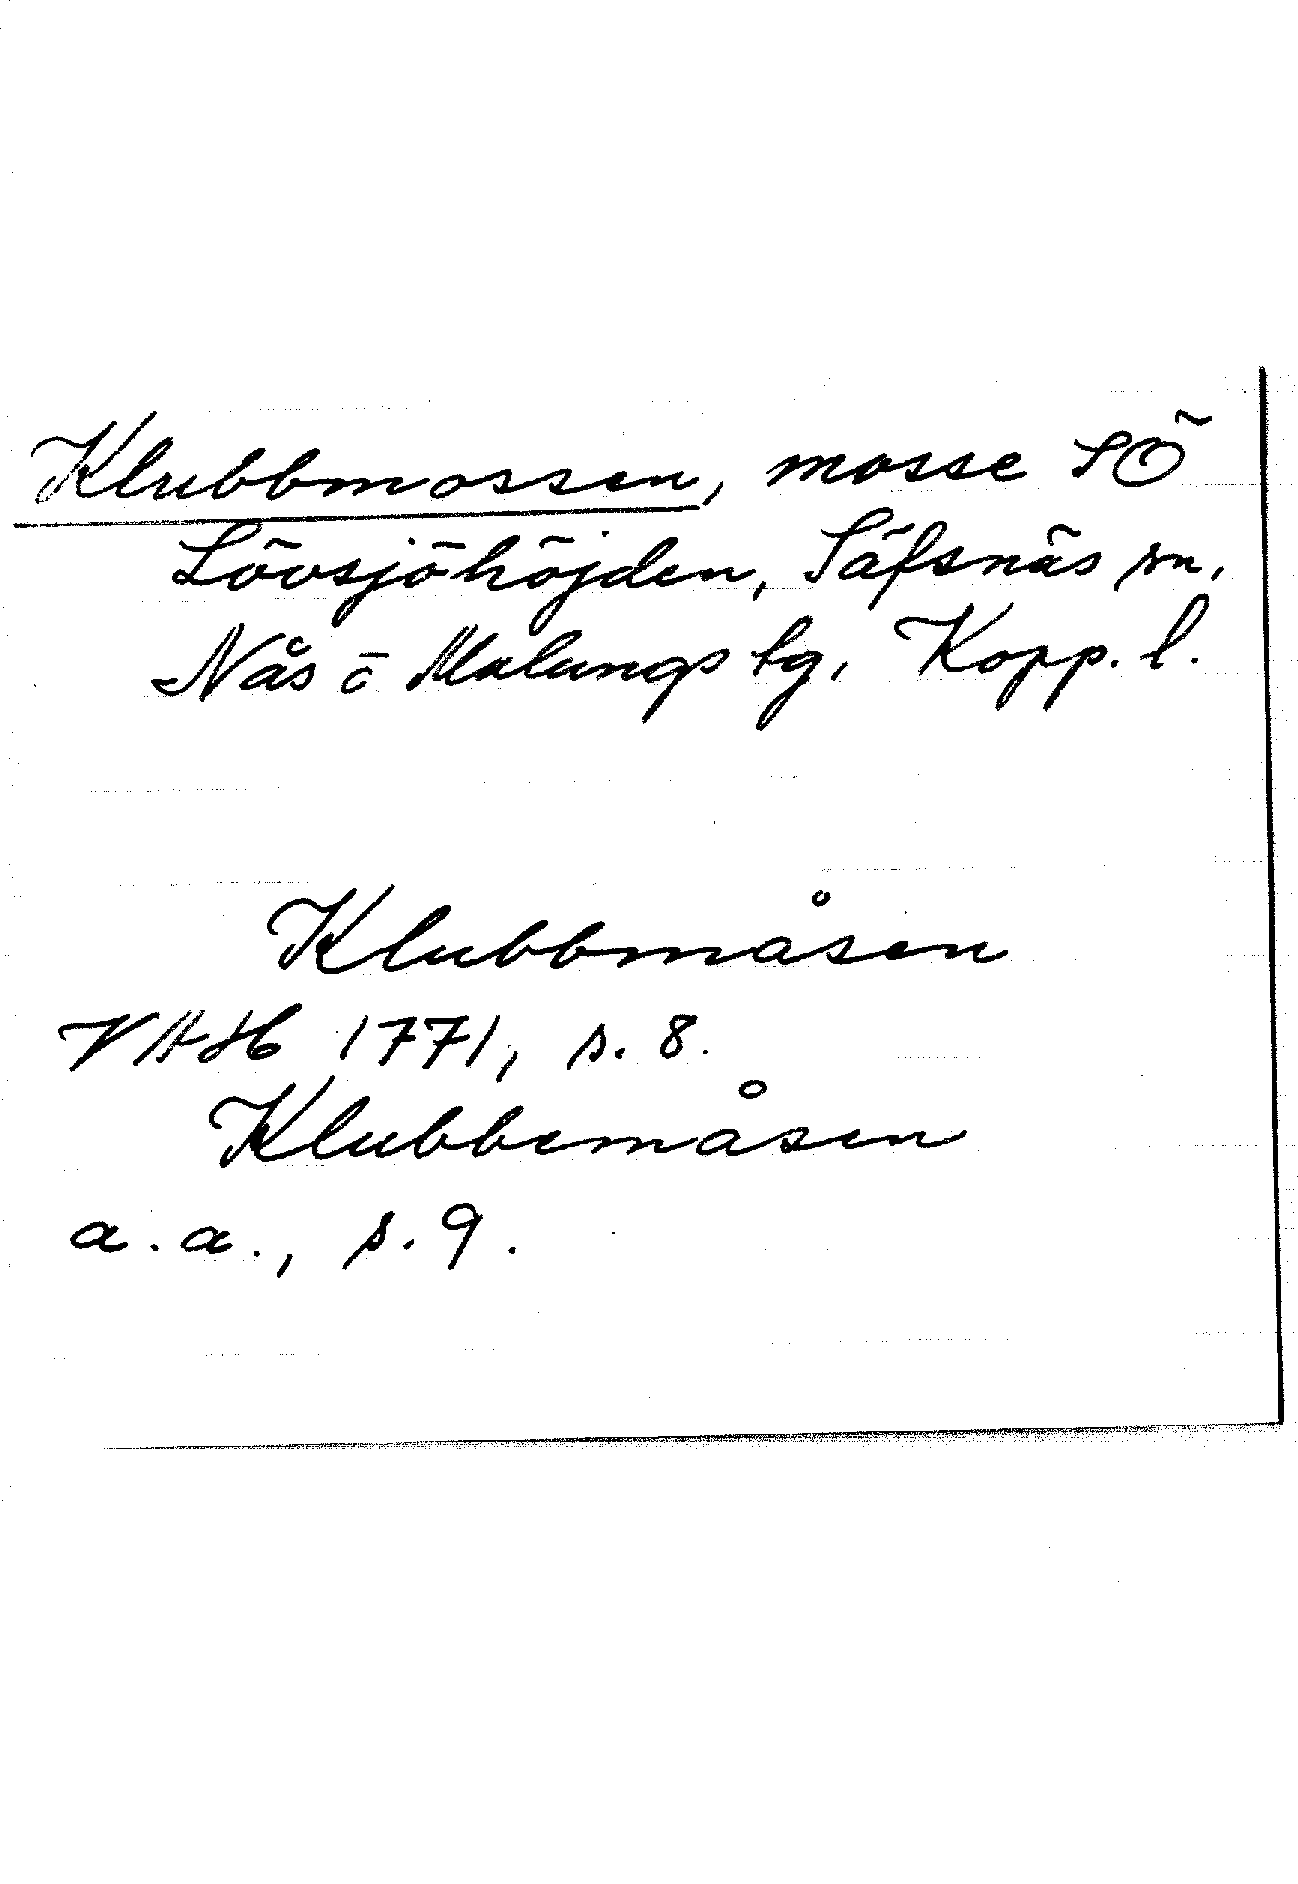 Klubbmossen, mosse SÖ
Lövsjöhöjden, Säfsnäs sn,
Nås ö Malungs tg, Kopp. l.
Klubbmåsen
VAH 1771, s. 8.
Klubbemåsen
a.a., s. 9.